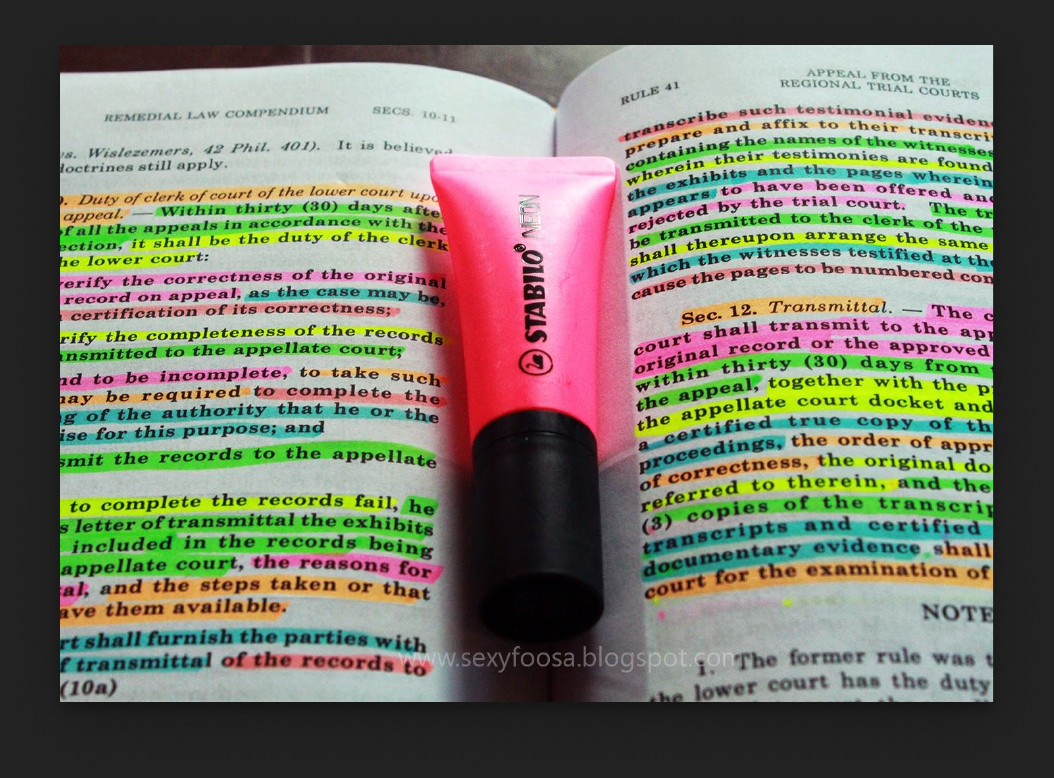 REMEDIAL LAW COMPENDIUM SECS. 10-11
vs. Wislezemers, 42 Phil. 401). It is believed
doctrines still apply.
Duty of clerk of court of the lower court upon
appeal. — Within thirty (30) days after
of all the appeals in accordance with the
ection, it shall be the duty of the clerk
he lower court:
verify the correctness of the original
record on appeal, as the case may be,
certification of its correctness;
rify the completeness of the records
ansmitted to the appellate court;
nd to be incomplete, to take such
may be required to complete the
g of the authority that he or the
ise for this purpose; and
smit the records to the appellate
to complete the records fail, he
s letter of transmittal the exhibits
included in the records being
appellate court, the reasons for
al, and the steps taken or that
ave them available.
rt shall furnish the parties with
f transmittal of the records to
(10a)
STABILO® NEON
RULE 41
APPEAL FROM THE
REGIONAL TRIAL COURTS
transcribe such testimonial eviden
prepare and affix to their transcri
containing the names of the witnesses
wherein their testimonies are found
the exhibits and the pages wherein
appears to have been offered and
rejected by the trial court. The tr
be transmitted to the clerk of the
shall thereupon arrange the same
which the witnesses testified at the
cause the pages to be numbered con
Sec. 12. Transmittal. — The c
court shall transmit to the app
original record or the approved
within thirty (30) days from
the appeal, together with the p
the appellate court docket and
a certified true copy of th
proceedings, the order of appr
of correctness, the original do
referred to therein, and the
(3) copies of the transcrip
transcripts and certified
documentary evidence shall
court for the examination of
NOTE
1. The former rule was t
the lower court has the duty
www.sexyfoosa.blogspot.com